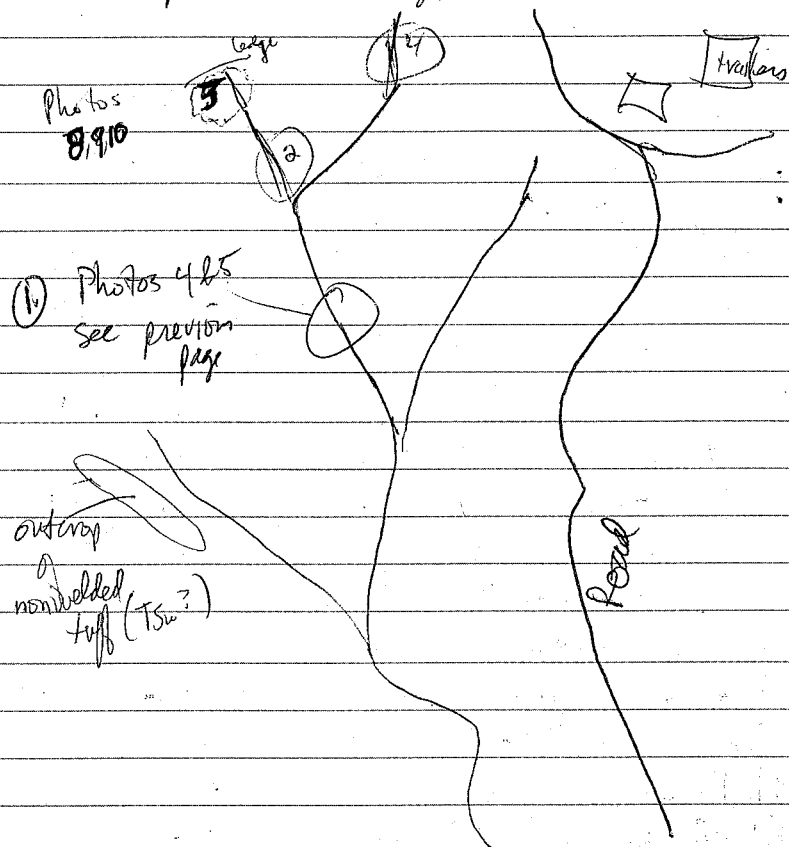 ledge
4
trailers
Photos
8,9,10
3
2
① Photos 4&5
see previous
page
outcrop
of
nonwelded
tuff (TSw?)
Road